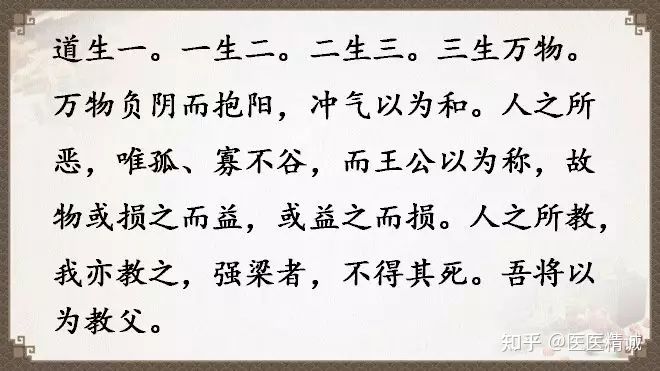 道生一。一生二。二生三。三生万物。
万物负阴而抱阳，冲气以为和。人之所
恶，唯孤、寡不谷，而王公以为称，故
物或损之而益，或益之而损。人之所教，
我亦教之，强梁者，不得其死。吾将以
为教父。
知乎 @医医精诚